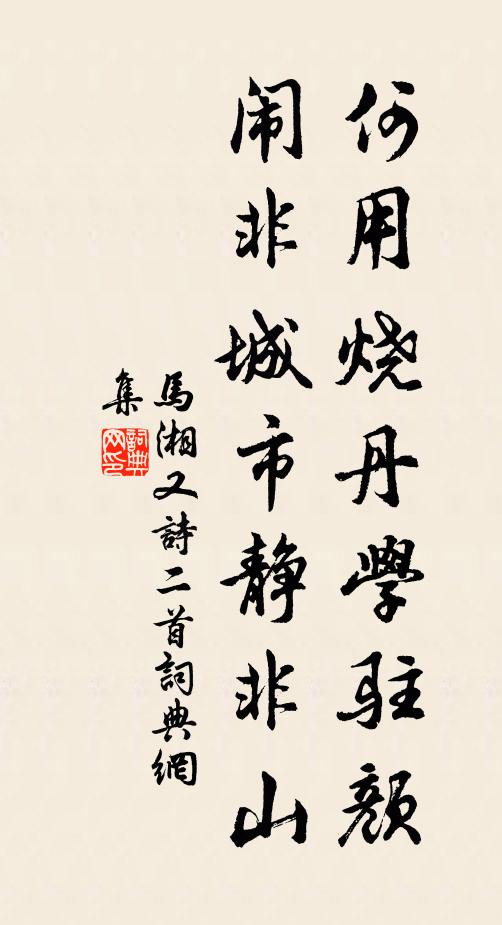 何用烧丹學駐颜
闹非城市静非山
馬湘又詩二首詞典網
集
詞典
网印